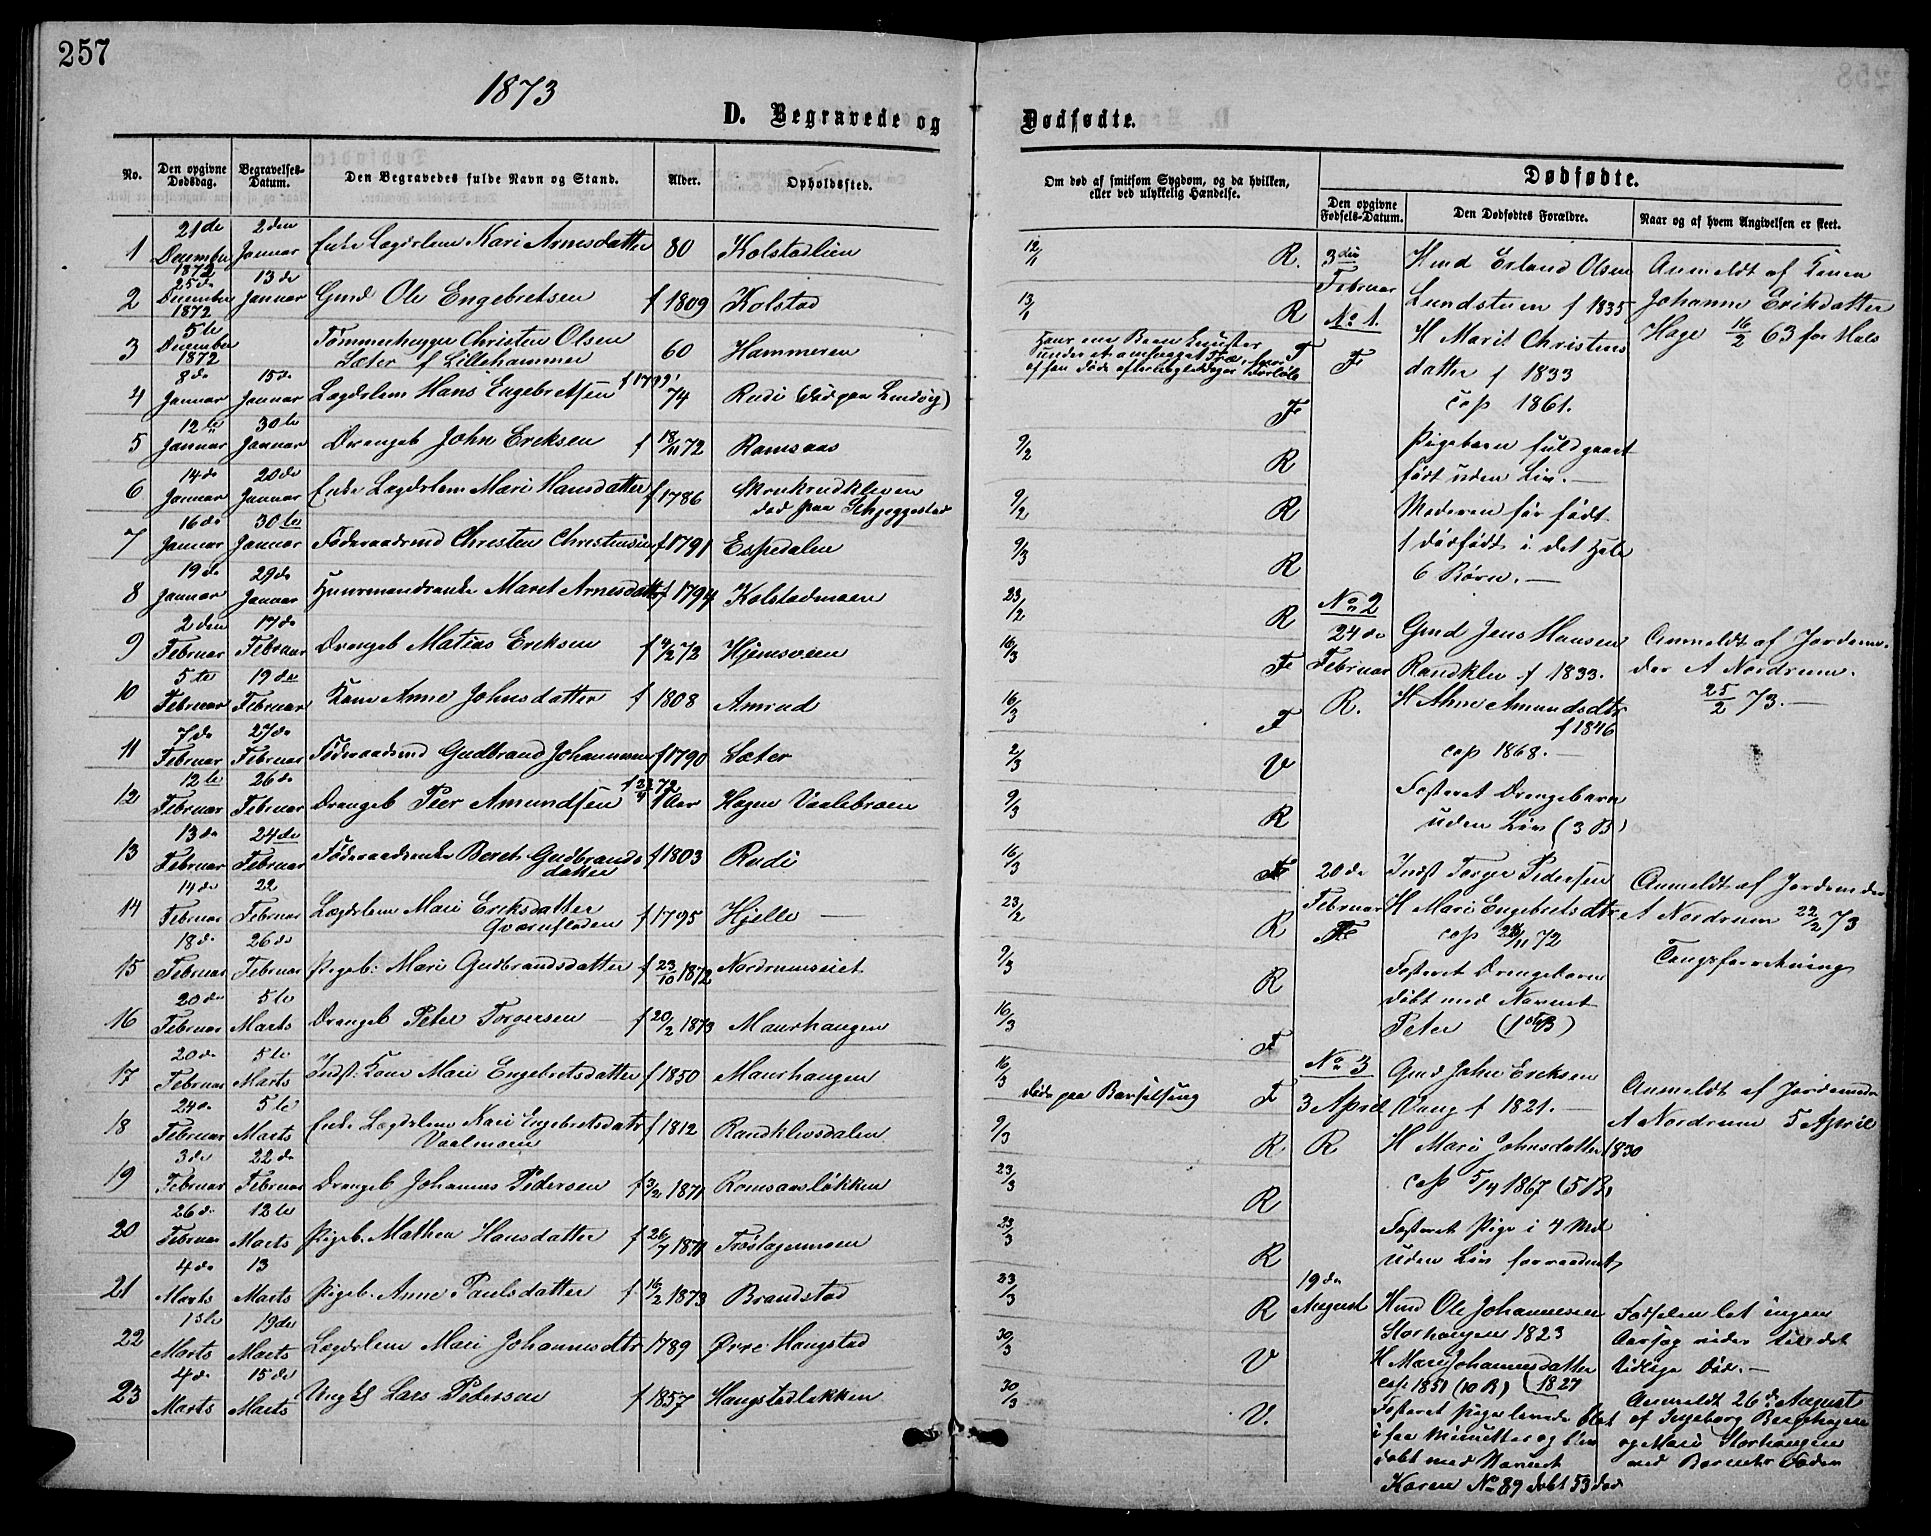 257
1873
D. Begravede og
Dødfødte.
No.
Den opgivne Dødsdag.
Begravelses-Datum.
Den Begravedes fulde Navn og Stand.
Alder.
Opholdssted.
1 21de December 1872 2den Januar Enke Lægdslem Kari Arnesdatter 80 Kolstadlien
2 25de December 1872 13de Januar Gmd Ole Engebretsen f 1809 Kolstad
3 5te December 1872 Tømmerhugger Christen Olsen
Sæter f Lillehammer 60 Hammeren
4 8de Januar 15de Januar Lægdslem Hans Engebretsen f 1799 74 Rudi (død paa Lundvig)
5 12te Januar 30te Januar Drengeb John Eriksen f 18/11 72 Romsaas
6 14de Januar 20de Januar Enke Lægdslem Mari Hansdatter f 1786 Skrukrudkleven
død paa Skjeggestad
7 16de Januar 30te Januar Føderaadsmd Christen Christensen f 1791 Espedalen
8 19de Januar 29de Januar Huusmandsenke Maret Arnesdatter f 1794 Kolstadmoen
9 2den Februar 17de Februar Drengeb Matias Eriksen f 4/2 72 Hjemsveen
10 5te Februar 19de Februar Kone Anne Johnsdatter f 1808 Amrud
11 7de Februar 27de Februar Føderaadsmd Gudbrand Johannesen f 1790 Sæter
12 12te Februar 26de Februar Drengeb Peer Amundsen 1 Aar Hagen Vaalebroen
13 13de Februar 24de Februar Føderaadsenke Beret Gudbrands
datter f 1803 Rudi
14 14de Februar 22 Februar Lægdslem Mari Eriksdatter
Qværnfloden f 1795 Hjelle
15 18de Februar 26de Februar Pigeb: Mari Gudbrandsdatter f 23/10 1872 Nordrumseiet
16 20de Februar 5te Marts Drengeb Peter Torgersen f 20/2 1873 Maurhaugen
17 20de Februar 5te Marts Indst: Kone Mari Engebretsdatter f 1850 Maurhaugen
18 24de Februar 5te Marts Enke Lægdslem Kari Engebretsdatr
Vaalmoen f 1812 Randklevsdalen
19 3de Februar 22de Februar Drengeb Johannes Pedersen f 3/2 1871 Romsaasløkken
20 26de Februar 12te Marts Pigeb. Mathea Hansdatter f 26/7 1871 Trøstagermoen
21 4de Marts 13 Marts Pigeb. Anne Paulsdatter f 16/2 1873 Brandstad
22 Marts 19de Marts Lægdslem Mari Johannesdtr 1789 Øvre Haugstad
23 4de Marts 15de Marts Ungk Lars Petersen f 1857 Haugstadløkken
Om død af smitsom Sygdom, og da hvilken,
eller ved ulykkelig Hændelse.
12/1 R.
13/1 R
T
F
9/2 R
9/2 R
9/3 R
23/2 R
16/3 F
16/3 F
2/3 V
9/3 R
16/3 F
23/2 R
9/3 R
16/3 F
16/3 døde paa Barselseng F
9/3 R
23/3 R
23/3 R
23/3 R
30/3 V
30/3 V.
Dødfødte.
Den opgivne Fødsels-Datum.
Den Dødfødtes Forældre.
Naar og af hvem Angivelsen er skeet.
3die Februar
No 1.
F
Hmd Erland Olsen
Lundstuen f 1835
H Marit Christens
datter f 1833
cop 1861.
Pigebarn fuldgaaet
født uden Liv.
Moderen før født
1 dødfødt i det hele
6 Børn.
Anmeldt af Konen
Johanne Eriksdatter
Hage 16/2 63 for Hals
No 2
24de Februar
R.
Gmd Jens Hansen
Randklev f 1833.
H Anne Amundsdtr
f 1846
cop 1868.
Fosteret Drengebarn
uden Liv (3 B)
Anmeldt af Jordemo-
der A Nordrum.
25/2 73.
20de Februar
F
Indst Torger Pedersen
H Mari Engebretsdtr
cop 72
Fosteret Drengebarn
døbt med Navnet
Peter
Anmeldt af Jordemoder
A Nordrum 22/2 73
Tangforretning
No 3
3 April
R
Gmd John Eriksen
Vang f 1821.
H Mari Johnsdatter 1830
cop 5/4 1867 (5 B)
Fosteret Pige i 4 Md
uden Liv forraadnet
Anmeldt af Jordemodr
A Nordrum 5 April
19de August
Hmd Ole Johannesen
Storhaugen 1823
H Mari Johannesdatter
cop 1851 (10 B) (1827
Fosteret Pige levede blot
i faa Minutter og blev
døbt med Navnet
Karen No 89 døbt 53 død
Fødselen lot ingen
Aarsag vider til det
tidlige Død.
Anmeldt 26de August
af Ingeborg Berghagen
og Mari Storhaugen
ved Barnets Fader